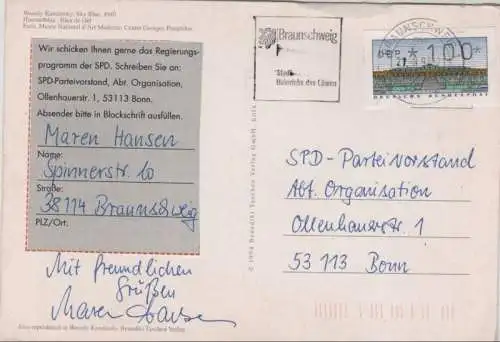 Wassily Kandinsky, Sky Blue, 1940
Himmelblau · Bleu de ciel
Paris, Musée National d'Art Moderne, Centre Georges Pompidou
Wir schicken Ihnen gerne das Regierungs-
programm der SPD. Schreiben Sie an:
SPD-Parteivorstand, Abt. Organisation,
Ollenhauerstr. 1, 53113 Bonn.
Absender bitte in Blockschrift ausfüllen.
Maren Hansen
Name:
Spinnerstr. 10
Straße:
38114 Braunschweig
PLZ/Ort:
Mit freundlichen
Grüßen
Maren Hansen
© 1994 Benedikt Taschen Verlag GmbH, Köln
Braunschweig
Stadt
Heinrichs des Löwen
BRAUNSCHWEIG
DBP *100*
DEUTSCHE BUNDESPOST
SPD-Parteivorstand
Abt. Organisation
Ollenhauerstr. 1
53113 Bonn